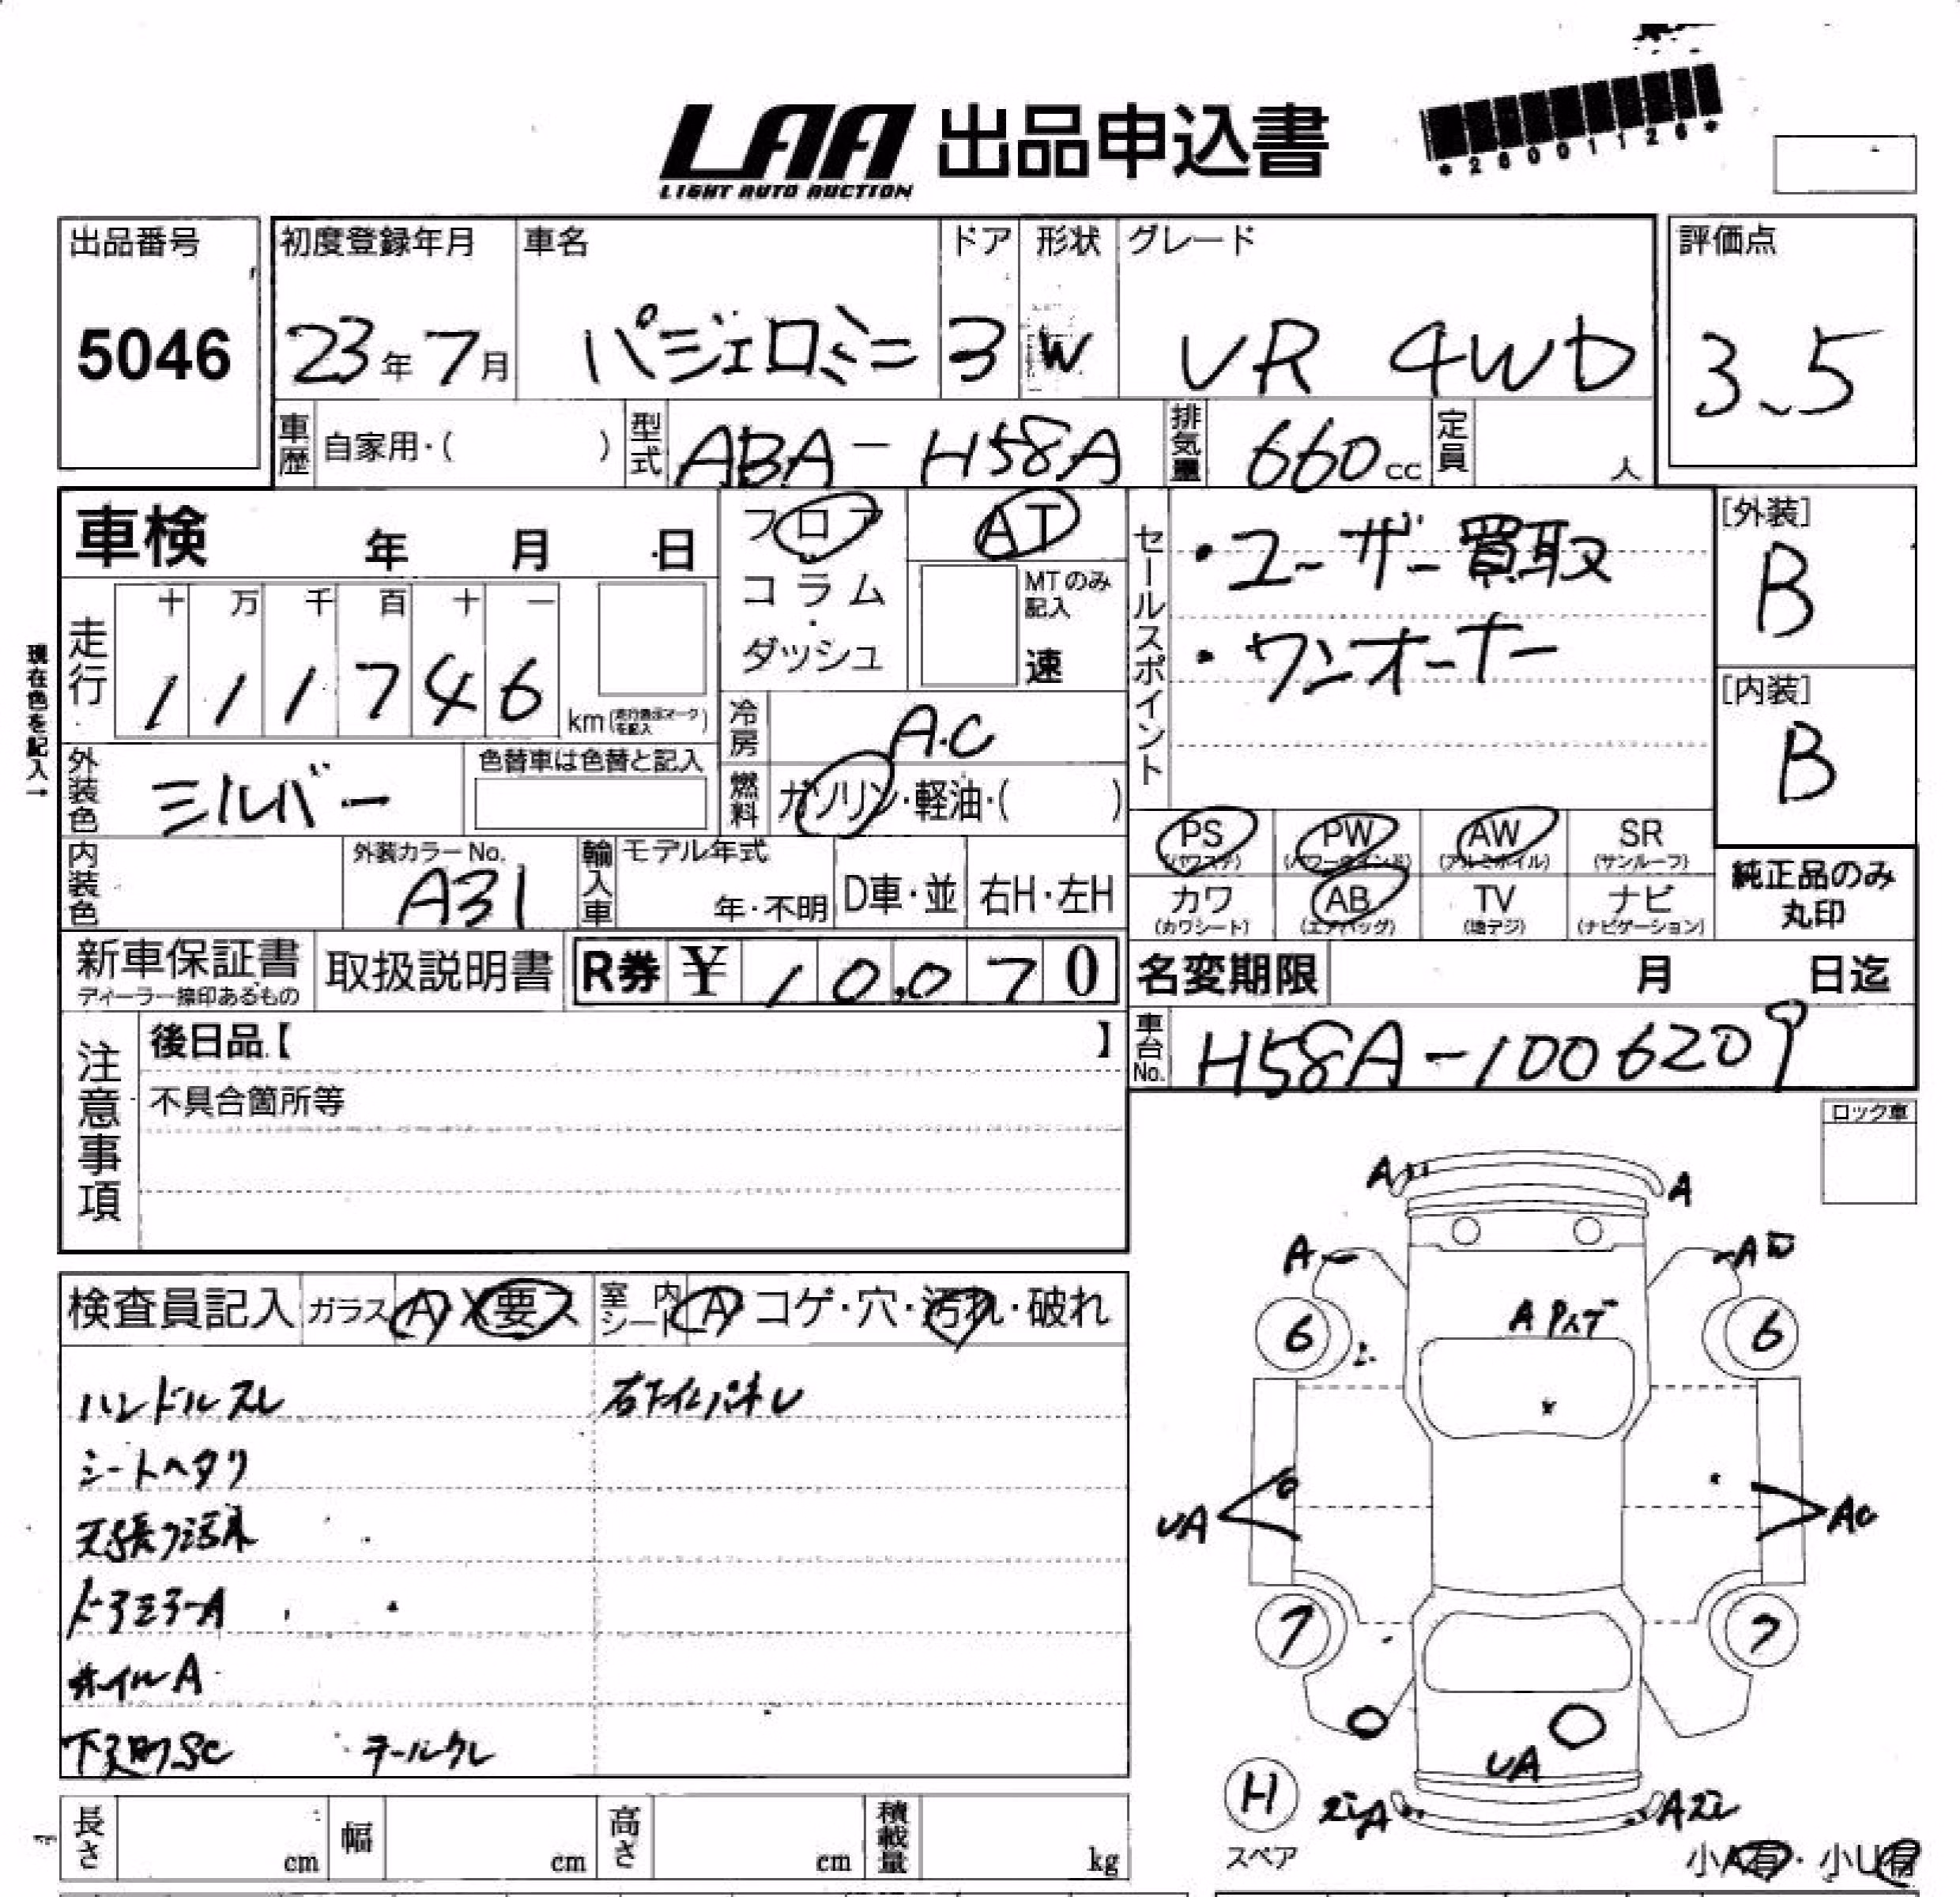 LAA 出品申込書
LIGHT AUTO AUCTION
*26001126*
出品番号
5046
初度登録年月
23年7月
車名
パジェロミニ
ドア
3
形状
W
グレード
VR 4WD
評価点
3.5
車歴 自家用・( )
型式 ABA-H58A
排気量 660cc
定員 人
車検 年 月 日
フロア
コラム
・
ダッシュ
AT
MTのみ記入
速
セールスポイント
・ユーザー買取
・ワンオーナー
[外装]
B
[内装]
B
現在色を記入→
走行 十 万 千 百 十 一
111746 km(走行表示マークを記入)
冷房 A.C
燃料 ガソリン・軽油・( )
外装色 シルバー
色替車は色替と記入
内装色
外装カラーNo.
A31
輸入車 モデル年式
年・不明
D車・並
右H・左H
PS
(パワステ)
PW
(パワーウインド)
AW
(アルミホイル)
SR
(サンルーフ)
カワ
(カワシート)
AB
(エアバッグ)
TV
(地デジ)
ナビ
(ナビゲーション)
純正品のみ
丸印
新車保証書
ディーラー捺印あるもの
取扱説明書
R券 ¥ 10,070
名変期限 月 日迄
車台No. H58A-1006209
注意事項
後日品【 】
不具合箇所等
ロック車
検査員記入 ガラス A X 要ス
室内シート A コゲ・穴・汚れ・破れ
ハンドルスレ
シートヘタリ
天張り汚れ
ドアミラーA
ホイルA
下廻りSC
テールクレ
A
A
A
A
A
6
6
UA
7
7
UA
H
スペア
A
A
小A有・小U有
長さ cm
幅 cm
高さ cm
積載量 kg